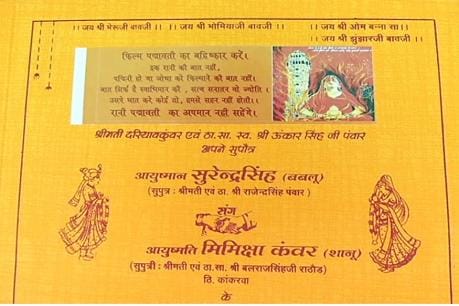 ।। जय श्री भेरूजी बावजी ।।
।। जय श्री भोमियाजी बावजी ।।
।। जय श्री ओम बन्ना सा ।।
।। जय श्री झुंझारजी बावजी ।।
फिल्म पद्मावती का बहिष्कार करें।
इक रानी की बात नहीं,
पद्मिनी हो या जोधा को फिल्माने की बात नहीं।
बात सिर्फ है स्वाभिमान की , सत्य सनातन की ज्योति ।
उसपे घात करे कोई तो, हमसे सहन नहीं होती ।।
रानी पद्मावती का अपमान नहीं सहेंगे।
श्रीमती दरियावकुंवर एवं ठा.सा. स्व. श्री ऊंकार सिंह जी पंवार
अपने सुपौत्र
आयुष्मान सुरेन्द्रसिंह (बबलू)
(सुपुत्र : श्रीमती एवं ठा. श्री राजेन्द्रसिंह पंवार )
संग
आयुष्मति मिमिक्षा कंवर (शानू)
(सुपुत्री : श्रीमती एवं ठा.सा. श्री बलराजसिंहजी राठौड)
ठि. कांकरवा
के